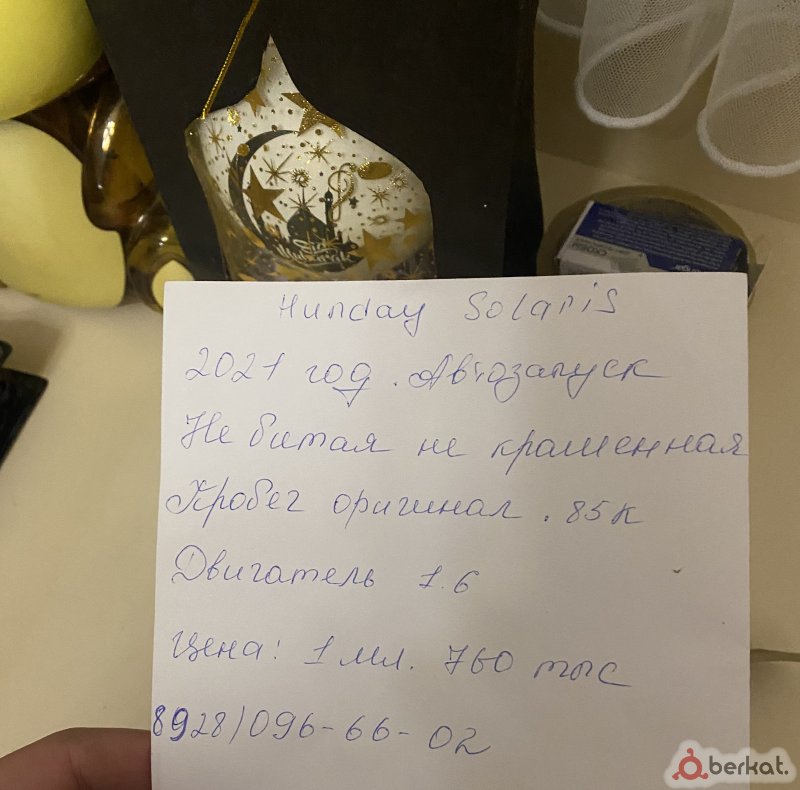 Eid
Mubarak
Hunday Solaris
2021 год. Автозапуск
Не битая не крашенная
Пробег оригинал. 85к
Двигатель 1.6
Цена: 1 мл. 760 тыс
8928/096-66-02
berkat.